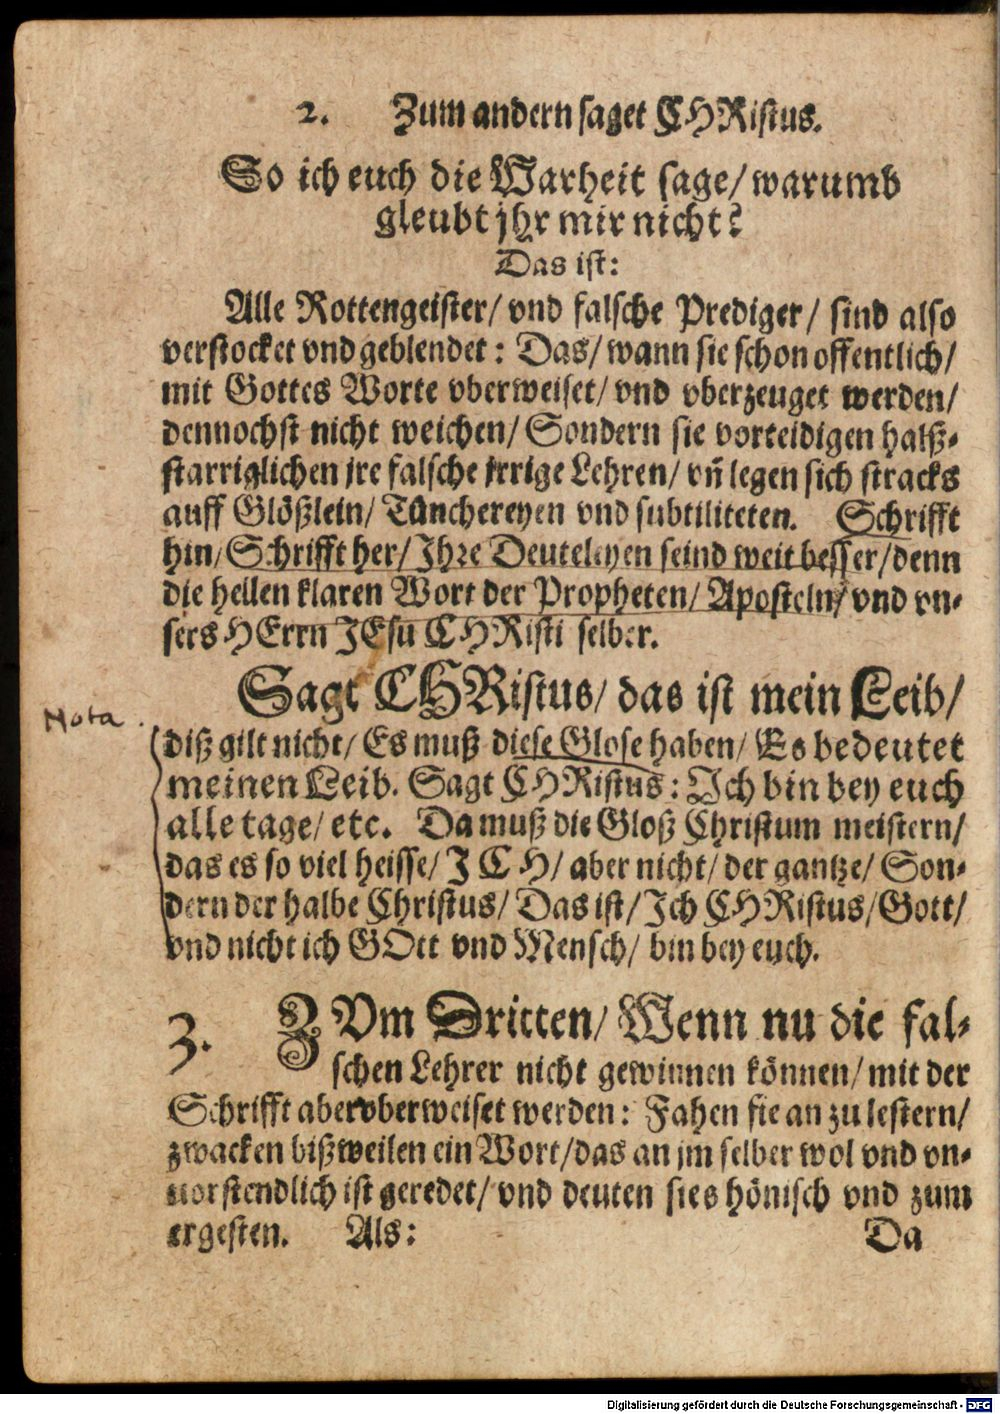 2. Zum andern saget CHRistus.
So ich euch die Warheit sage/ warumb
gleubt jhr mir nicht?
Das ist:
Alle Rottengeister/ vnd falsche Prediger/ sind also
verstocket vnd geblendet: Das/ wann sie schon offentlich/
mit Gottes Worte vberweiset/ vnd vberzeuget werden/
dennochst nicht weichen/ Sondern sie vorteidigen halß-
starriglichen jre falsche jrrige Lehren/ vñ legen sich stracks
auff Glößlein/ Tünchereyen vnd subtiliteten. Schrifft
hin/ Schrifft her/ Jhre Deuteleyen seind weit besser/ denn
die hellen klaren Wort der Propheten/ Aposteln/ vnd vn-
sers HErrn JEsu CHRisti selber.
Sagt CHRistus/ das ist mein Leib/
Nota.
diß gilt nicht/ Es muß diese Glose haben/ Es bedeutet
meinen Leib. Sagt CHRistus: Ich bin bey euch
alle tage/ etc. Da muß die Gloß Christum meistern/
das es so viel heisse/ JCH/ aber nicht/ der gantze/ Son-
dern der halbe Christus/ Das ist/ Jch CHRistus/ Gott/
vnd nicht ich GOtt vnd Mensch/ bin bey euch.
3. ZVm Dritten/ Wenn nu die fal-
schen Lehrer nicht gewinnen können/ mit der
Schrifft aber vberweiset werden: Fahen sie an zu lestern/
zwacken bißweilen ein Wort/ das an jm selber wol vnd vn-
uorstendlich ist geredet/ vnd deuten sies hönisch vnd zum
ergesten. Als:
Da
Digitalisierung gefördert durch die Deutsche Forschungsgemeinschaft - DFG